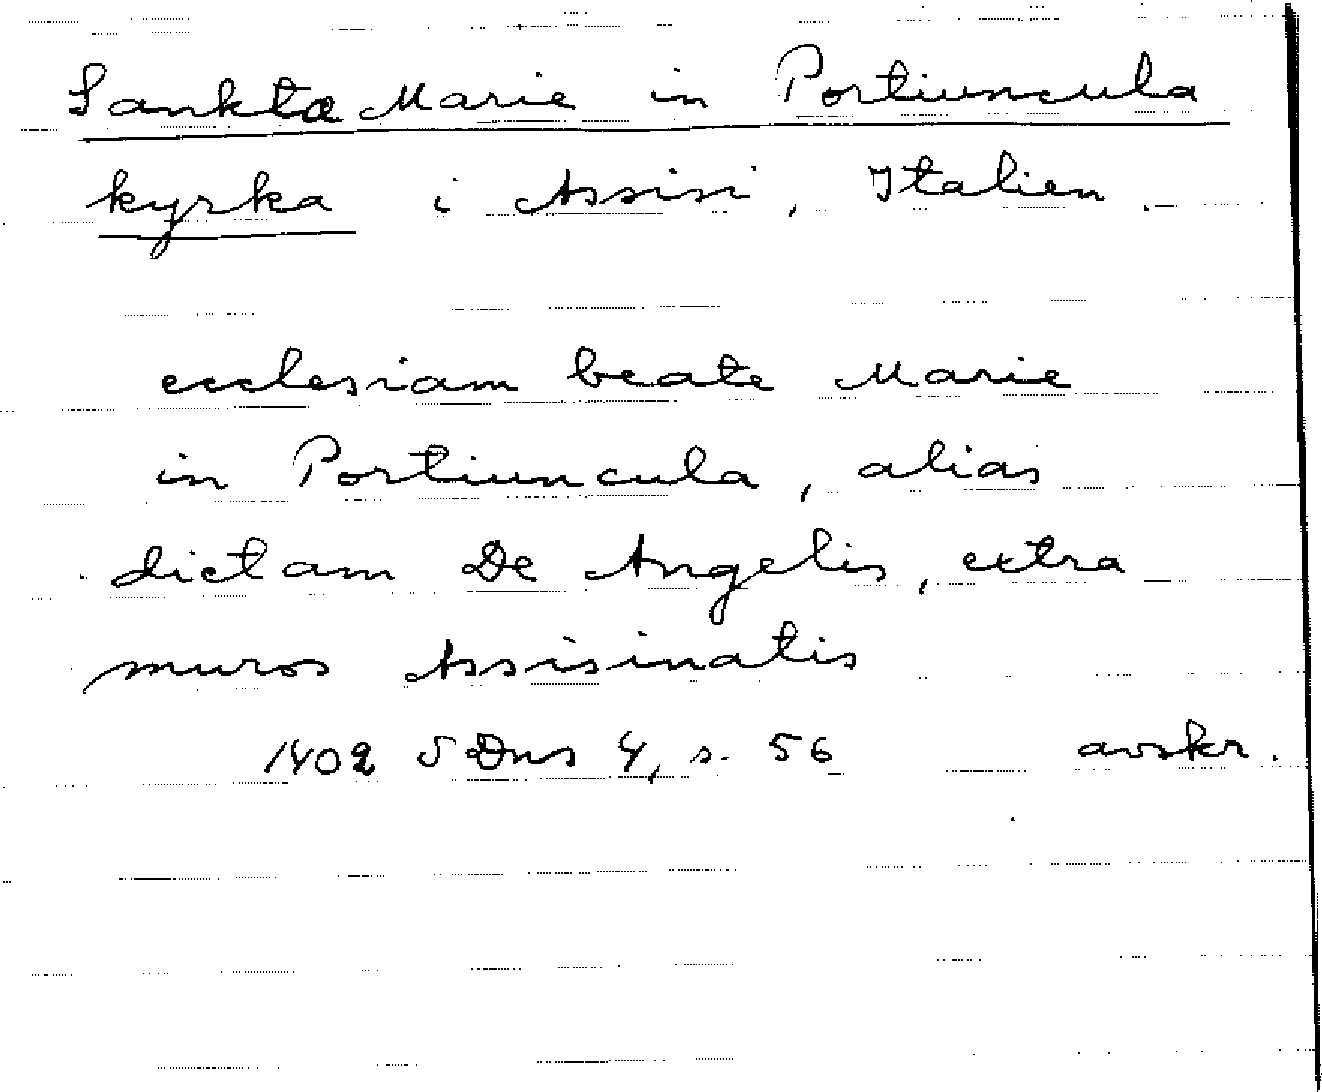 Sankta Marie in Portiuncula
kyrka i Assisi, Italien.
ecclesiam beate Marie
in Portiuncula, alias
dictam De Angelis, extra
muros Assisinatis
1402 SDns 4, s. 56 avskr.